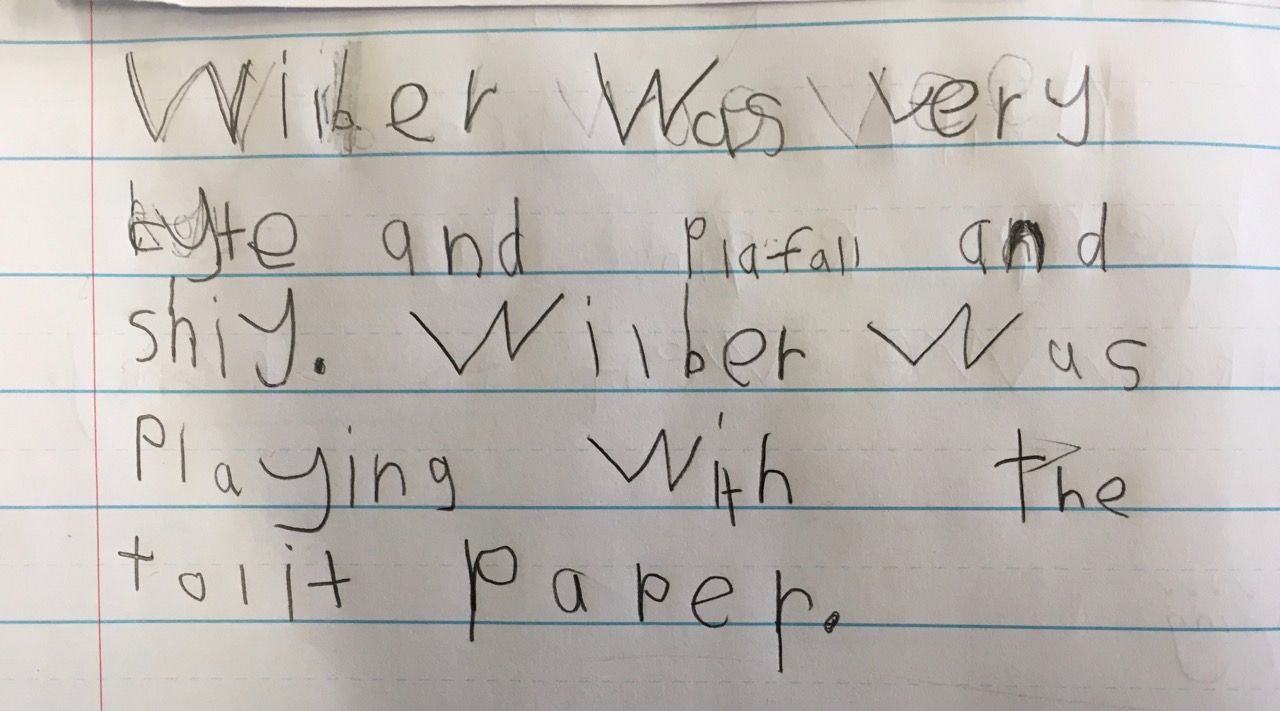 Wilber Was very
and Plafall and
shiy. Wilber Was
Playing With the
tolit Paper.